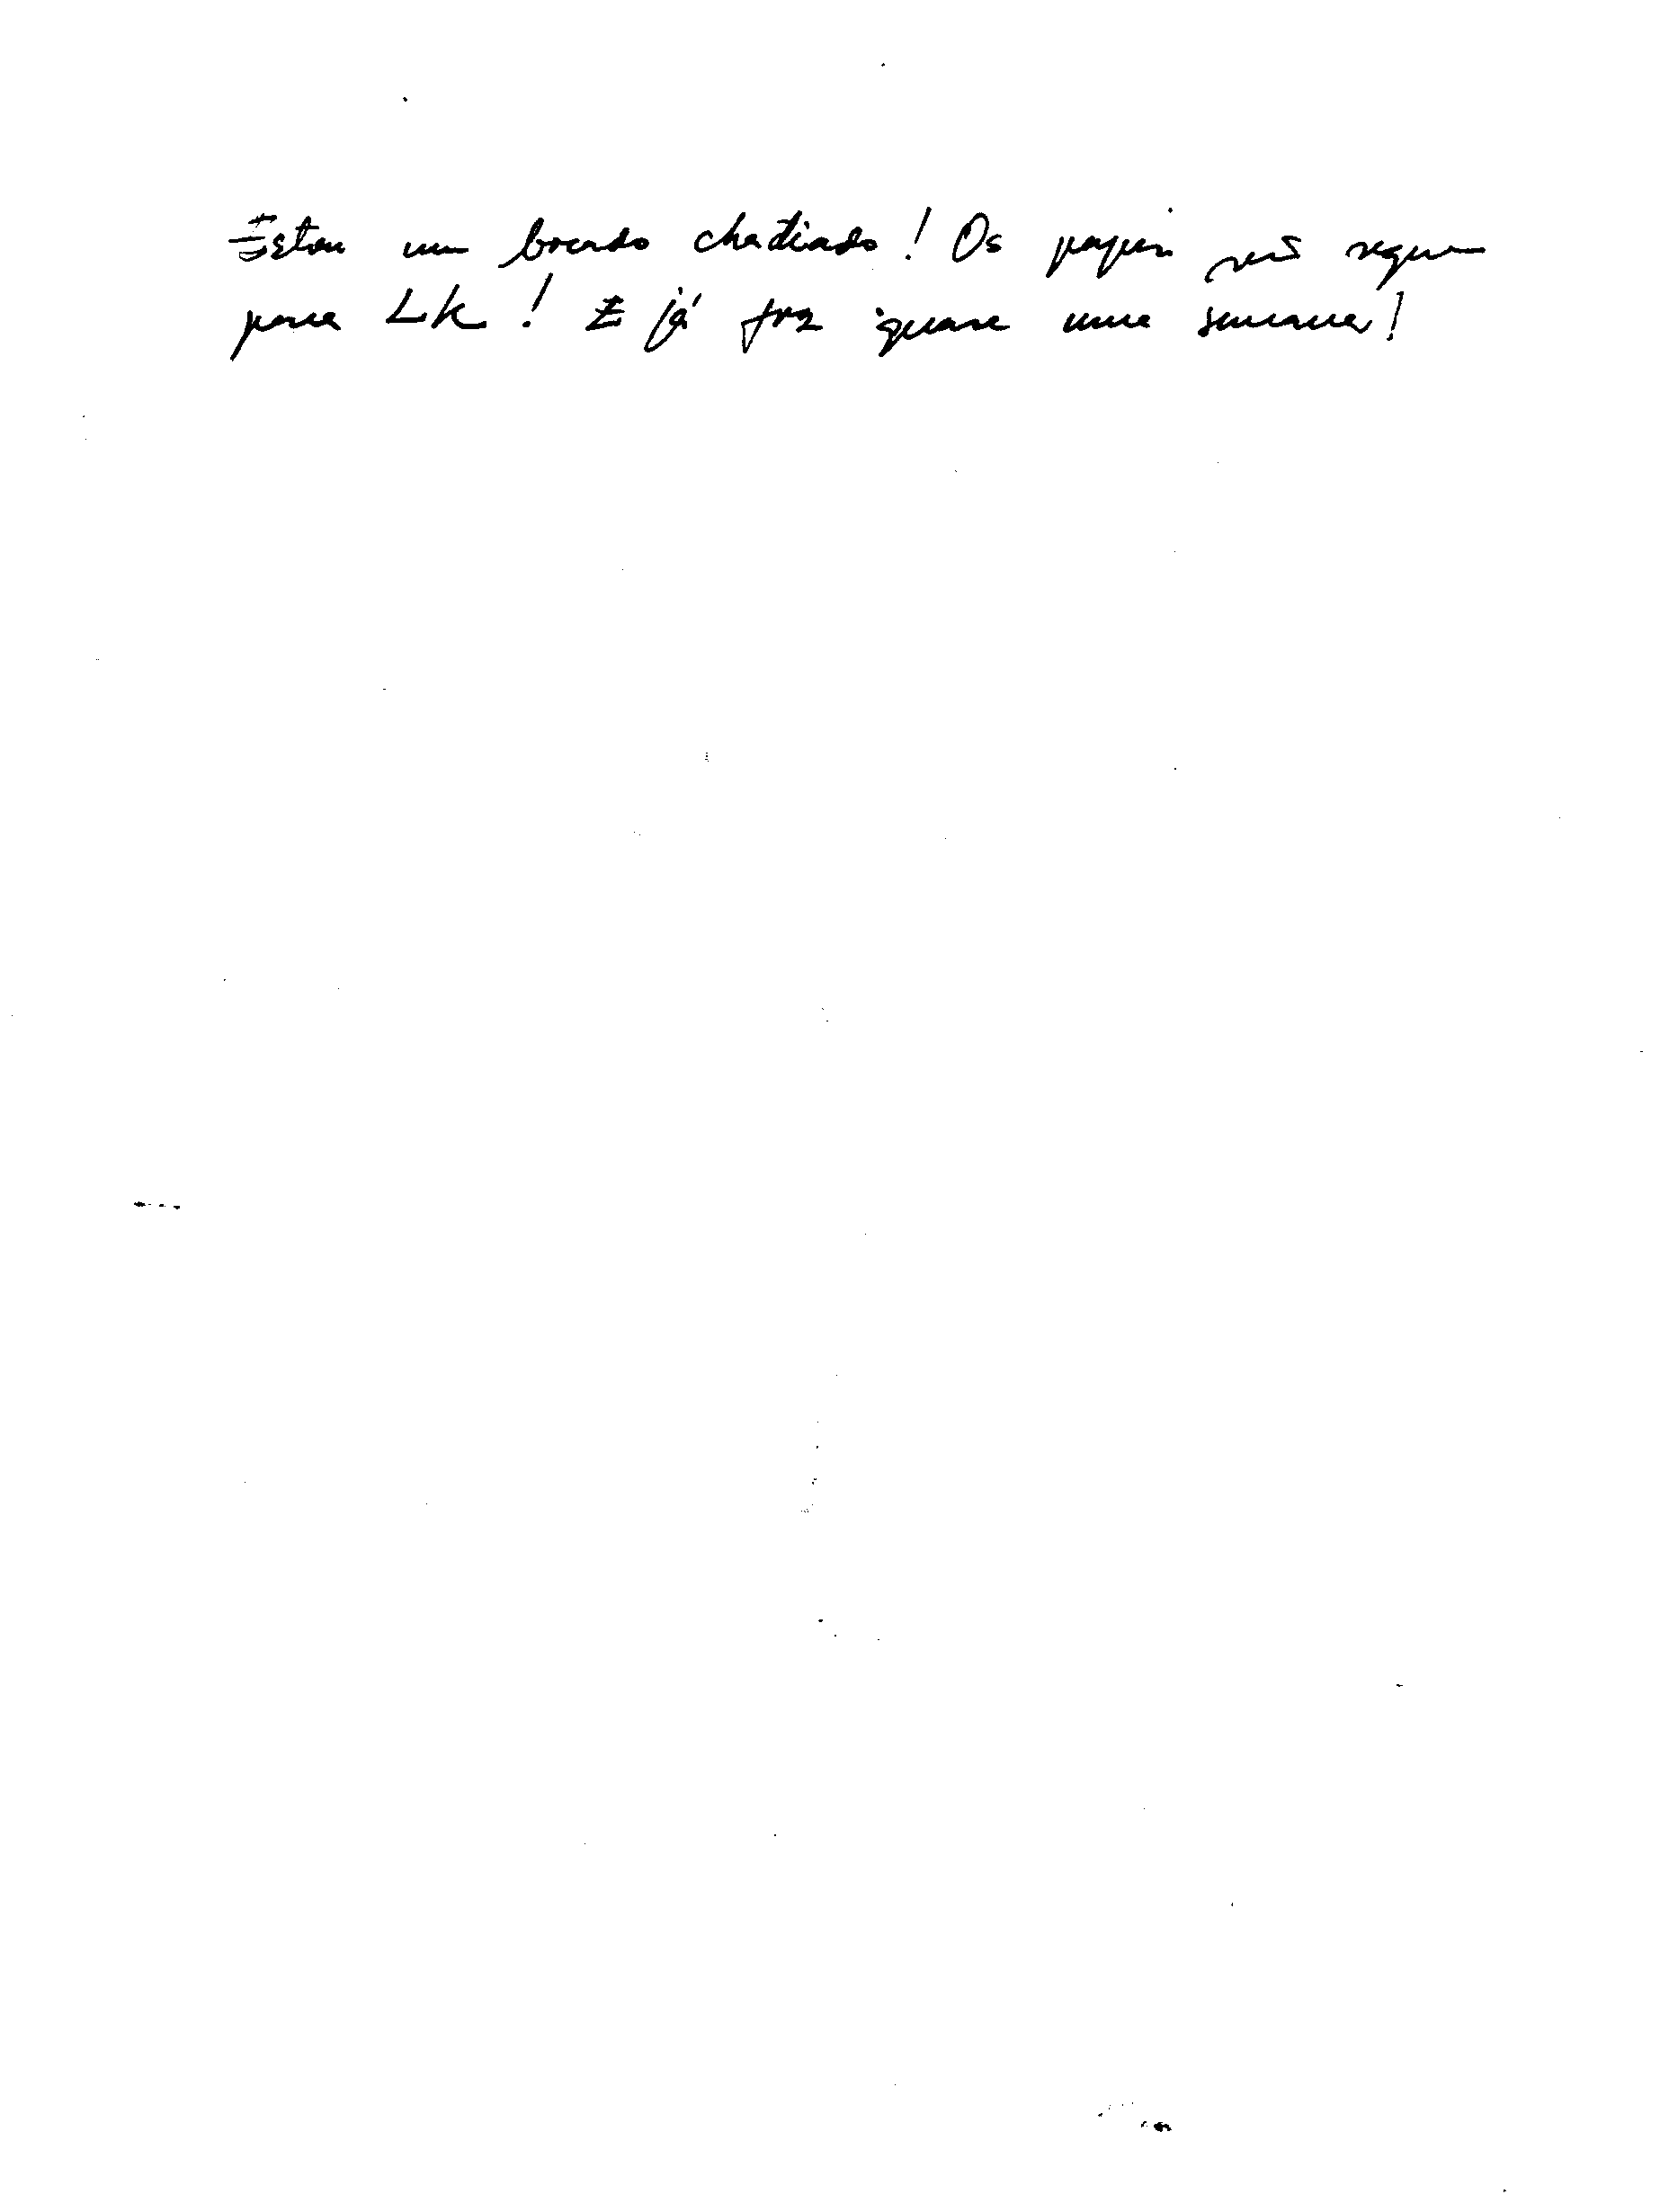 Estou um bocado chatiado! Os papeis não seguem
para LK! E já faz quase uma semana!